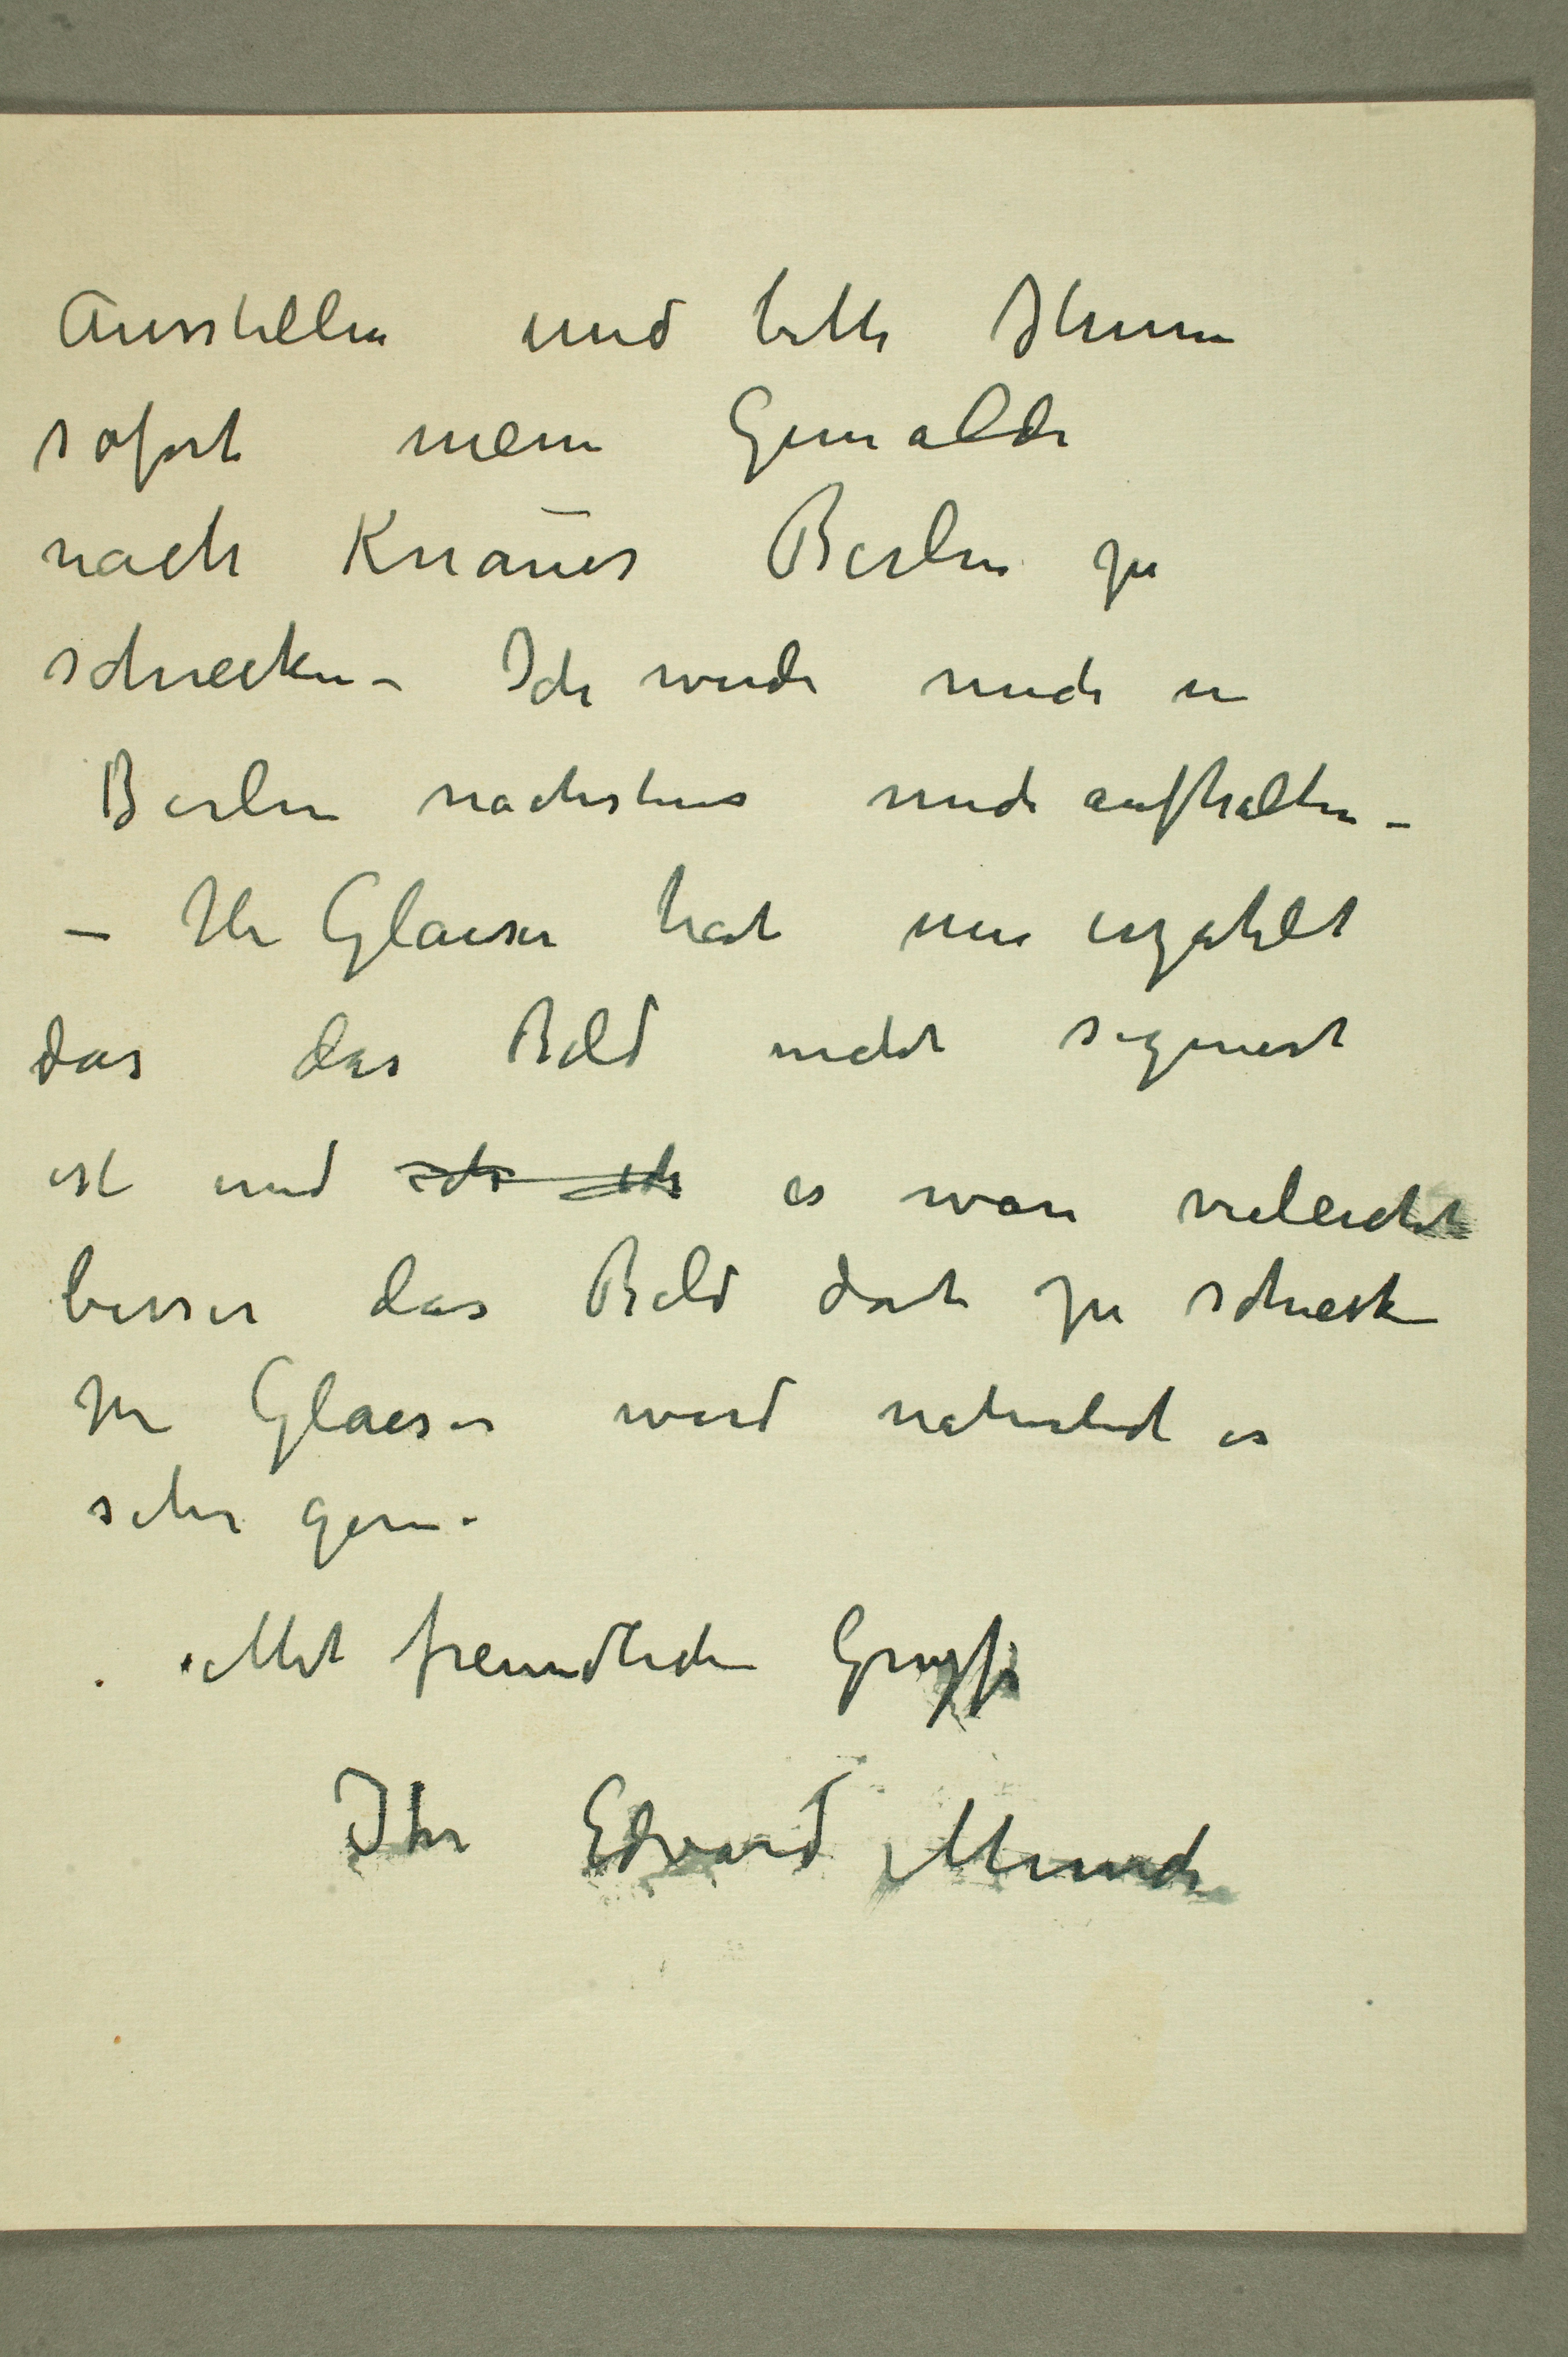 Ausstellen und bitte Ihnen
sofort meine Gemalde
nach Knauer Berlin zu
schicken – Ich werde mich in
Berlin nachstens mich aufhalten –
– Hr Glaeser hat mir erzahlt
das das Bild nicht signiert
ist und ich ich es ware vieleicht
besser das Bild dort zu schicken
Hr Glaeser wird naturlich es
sehr gern.
Mit freundlichen Gruße
Ihr Edvard Munch